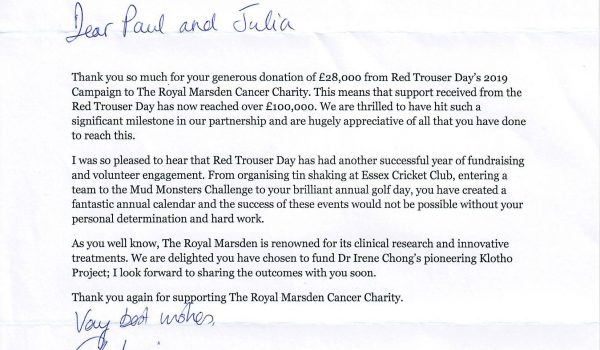 Dear Paul and Julia
Thank you so much for your generous donation of £28,000 from Red Trouser Day's 2019
Campaign to The Royal Marsden Cancer Charity. This means that support received from the
Red Trouser Day has now reached over £100,000. We are thrilled to have hit such a
significant milestone in our partnership and are hugely appreciative of all that you have done
to reach this.
I was so pleased to hear that Red Trouser Day has had another successful year of fundraising
and volunteer engagement. From organising tin shaking at Essex Cricket Club, entering a
team to the Mud Monsters Challenge to your brilliant annual golf day, you have created a
fantastic annual calendar and the success of these events would not be possible without your
personal determination and hard work.
As you well know, The Royal Marsden is renowned for its clinical research and innovative
treatments. We are delighted you have chosen to fund Dr Irene Chong's pioneering Klotho
Project; I look forward to sharing the outcomes with you soon.
Thank you again for supporting The Royal Marsden Cancer Charity.
Very best wishes,